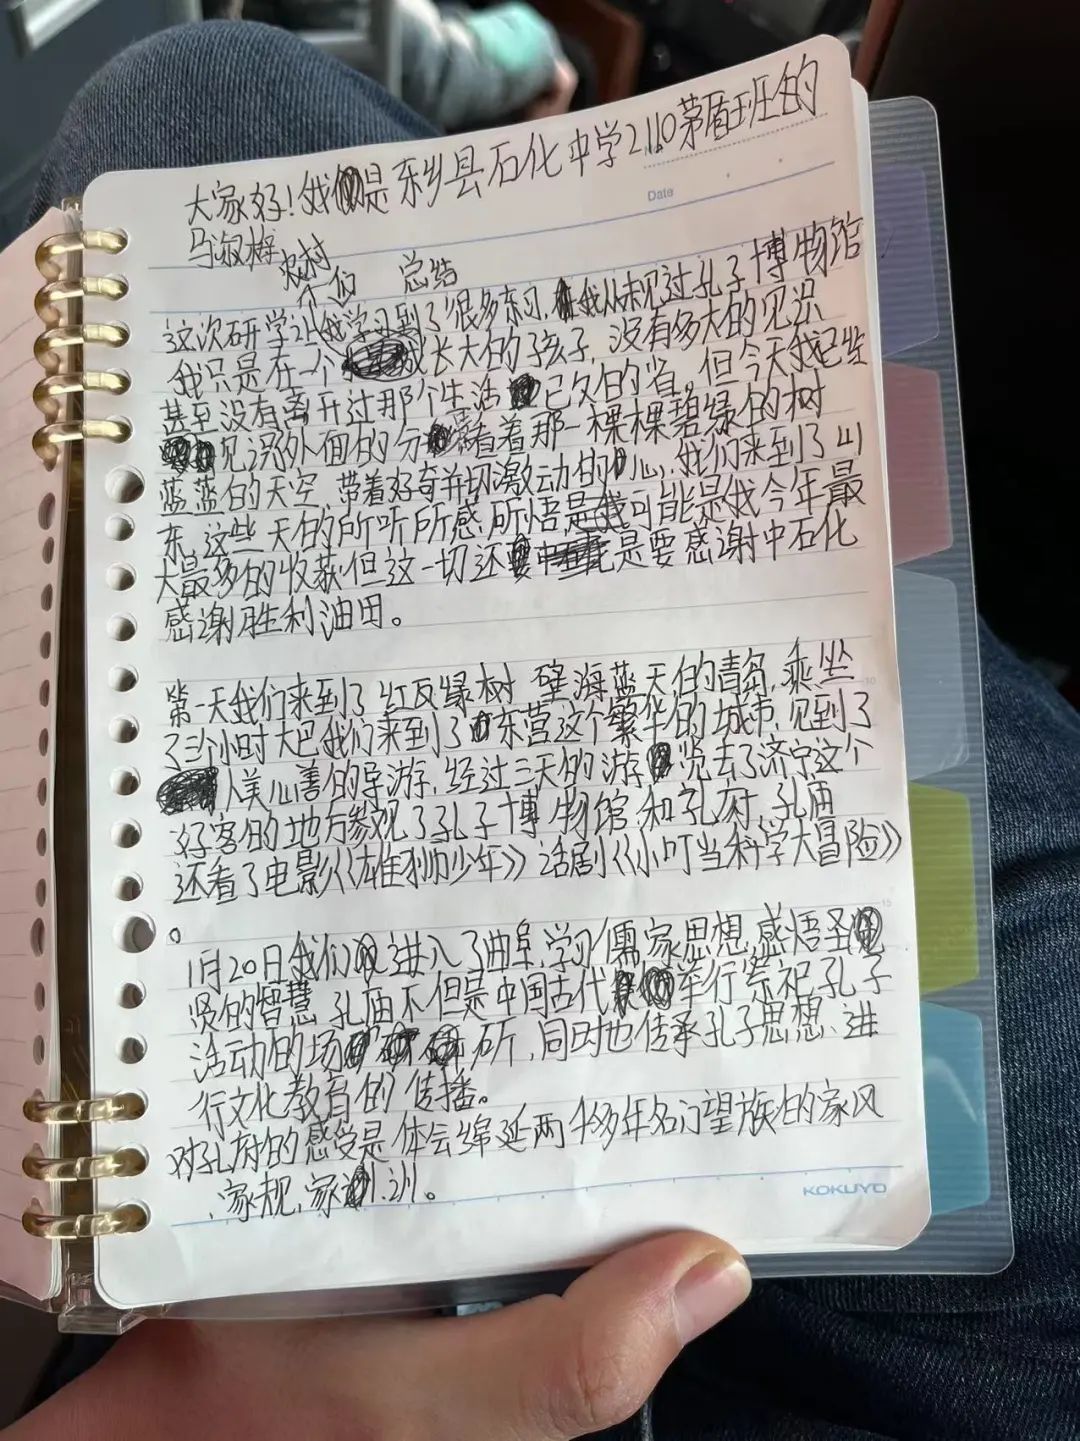 大家好！我是东乡县石化中学2110茅盾班的
Date
马淑梅
农村
们 总结
这次研学让我学习到了很多东习，我从未见过孔子博物馆
我只是在一个成长大的孩子，没有多大的见识
甚至没有离开过那个生活已久的省。但今天我已些
见识外面的 着那一棵棵碧绿的树
蓝蓝的天空 带着好奇并切激动的心，我们来到了山
东。这些天的所听所感所悟是可能是我今年最
大最多的收获但这一切还是要感谢中石化
感谢胜利油田。
第一天我们来到了红瓦绿树 碧海蓝天的青岛，乘坐
了三个小时大巴我们来到了东营这个繁华的城市，见到了
人美心善的导游，经过三天的游览去了济宁这个
好客的地方参观了孔子博物馆和孔府，孔庙
还看了电影《雄狮少年》话剧《小叮当科学大冒险》
。
1月20日我们进入了曲阜，学习儒家思想，感悟圣
贤的智慧 孔庙不但是中国古代举行祭祀孔子
活动的场所，同时也传承孔子思想、进
行文化教育的传播。
对孔府的感受是体会绵延两千多年名门望族的家风
、家规、家训。
KOKUYO